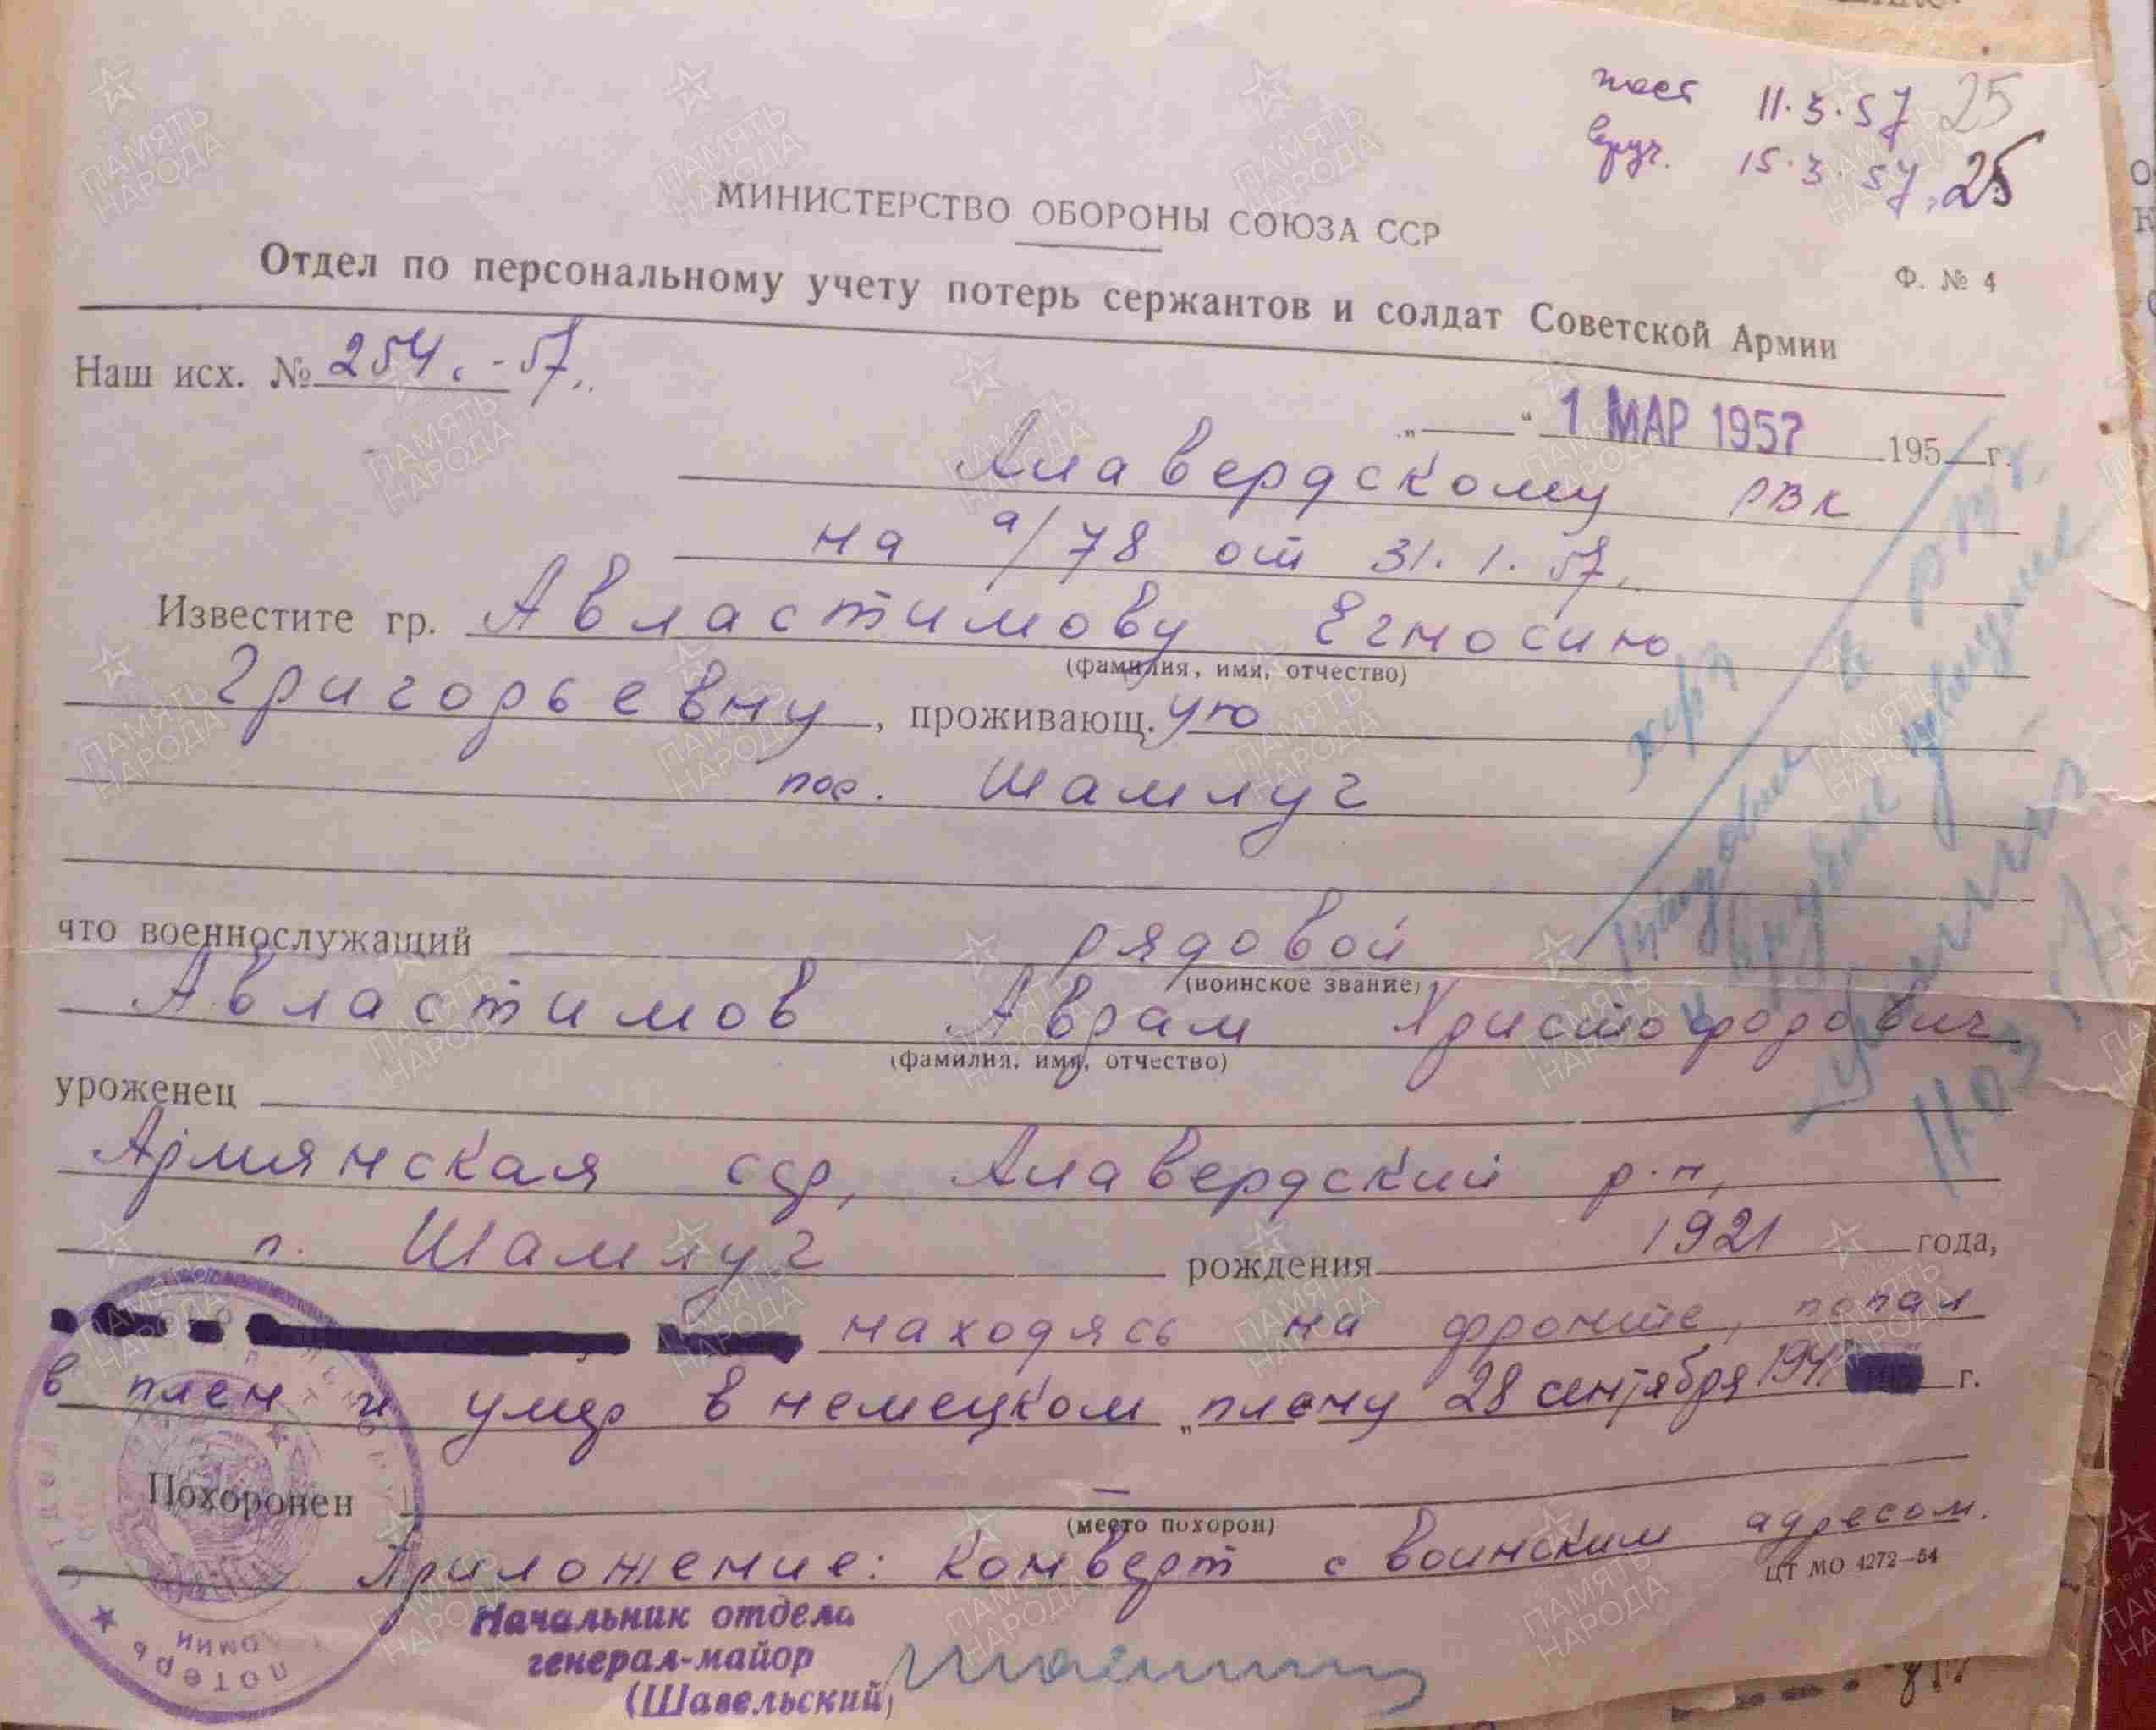 пост 11.3.57 25
вруч. 15.3.57, 25
МИНИСТЕРСТВО ОБОРОНЫ СОЮЗА ССР
Ф. № 4
Отдел по персональному учету потерь сержантов и солдат Советской Армии
Наш исх. № 254.-57..
„ “ 1 МАР 1957 195 г.
Алавердскому РВК
на а/78 от 31.1.57.
Известите гр. Авластимову Егносию
(фамилия, имя, отчество)
Григорьевну, проживающ.ую
пос. Шамлуг
что военнослужащий рядовой
(воинское звание)
Авластимов Аврам Христофорович
(фамилия, имя, отчество)
уроженец
Армянская сср, Алавердский р-н,
п. Шамлуг рождения 1921 года,
находясь на фронте, попал
в плен и умер в немецком „ плену 28 сентября 194 г.
Похоронен —
(место похорон)
Приложение: конверт с воинским адресом.
ЦТ МО 4272—54
Начальник отдела
генерал-майор
(Шавельский)
ПАМЯТЬ
НАРОДА